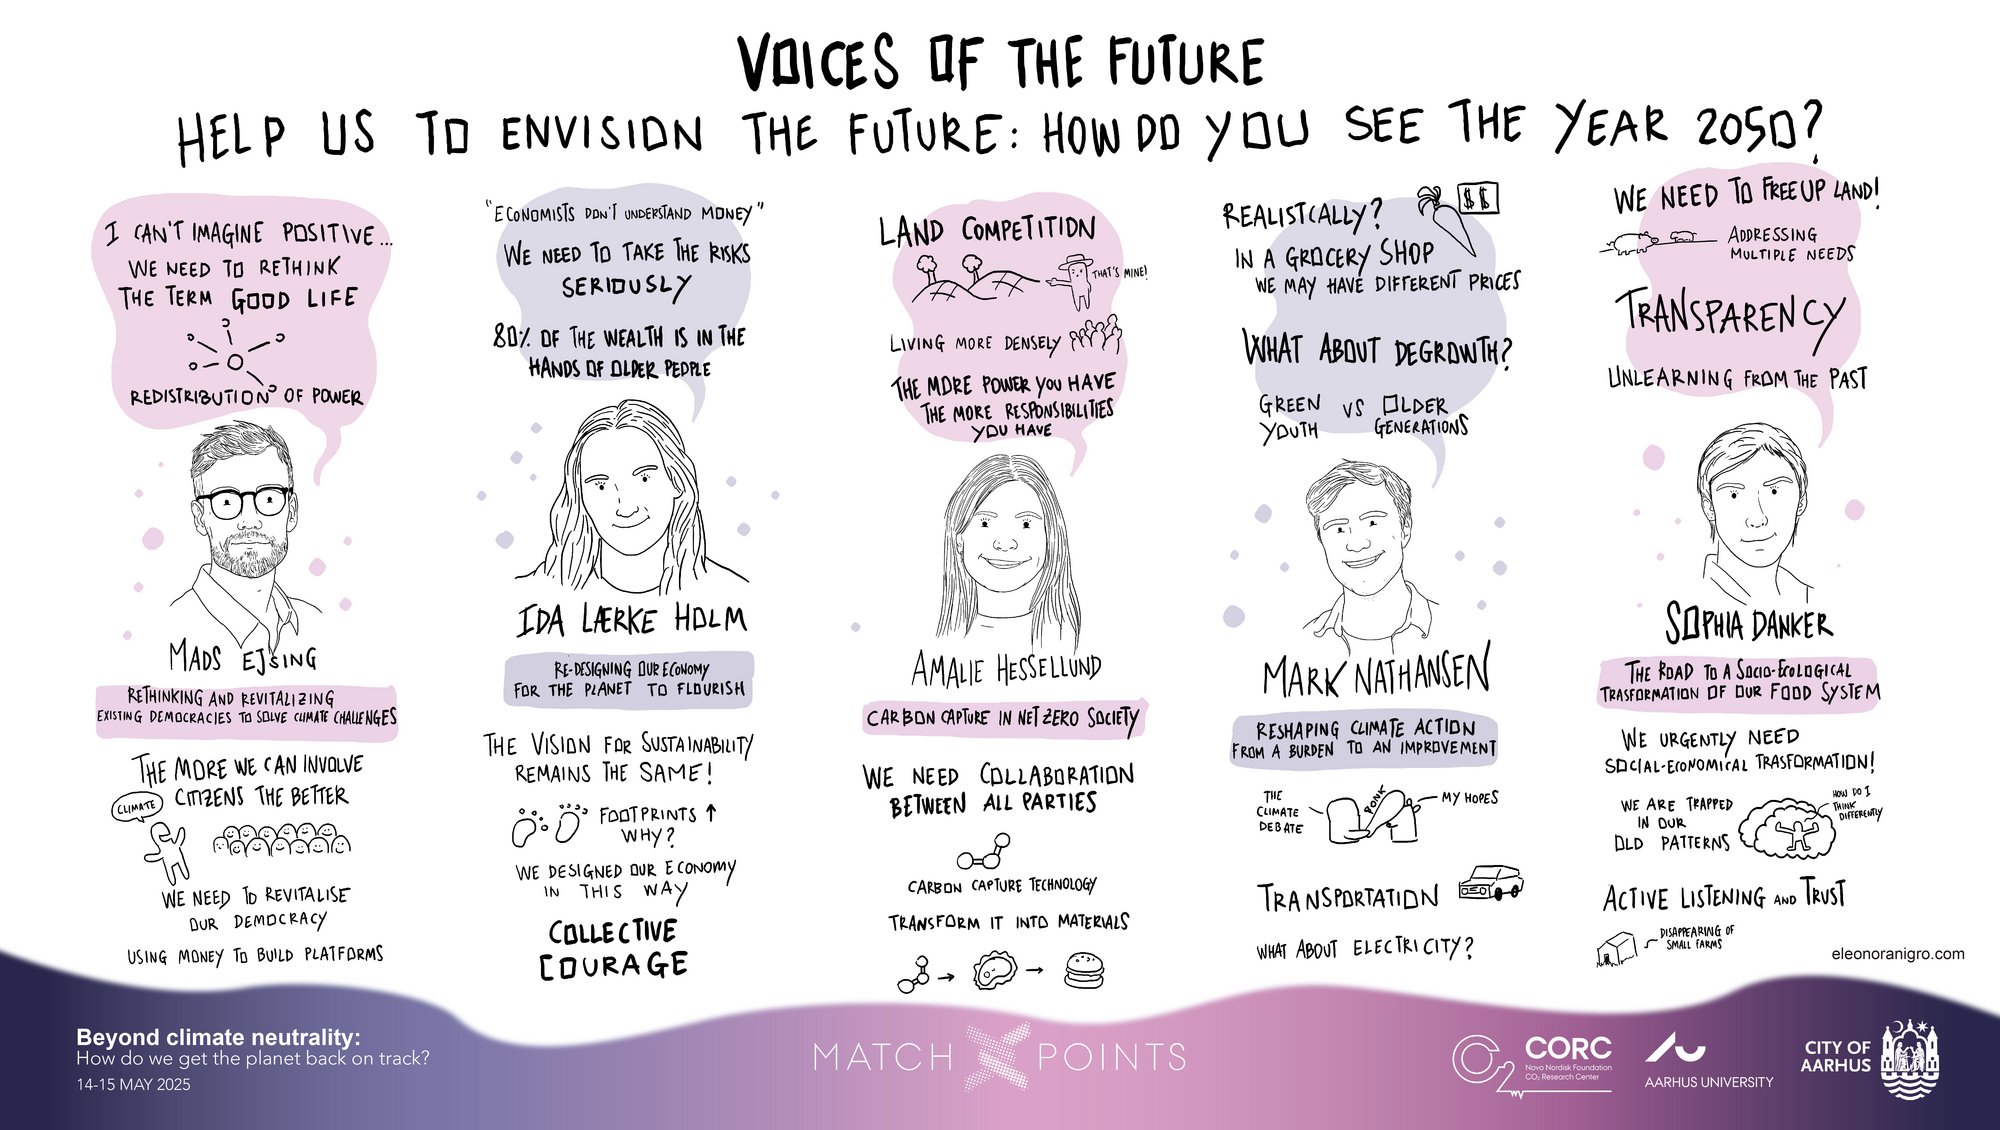 VOICES OF THE FUTURE
HELP US TO ENVISION THE FUTURE: HOW DO YOU SEE THE YEAR 2050?
I CAN'T IMAGINE POSITIVE...
WE NEED TO RETHINK
THE TERM GOOD LIFE
REDISTRIBUTION OF POWER
MADS EJSING
RETHINKING AND REVITALIZING
EXISTING DEMOCRACIES TO SOLVE CLIMATE CHALLENGES
THE MORE WE CAN INVOLVE
CITIZENS THE BETTER
CLIMATE
WE NEED TO REVITALISE
OUR DEMOCRACY
USING MONEY TO BUILD PLATFORMS
"ECONOMISTS DON'T UNDERSTAND MONEY"
WE NEED TO TAKE THE RISKS
SERIOUSLY
80% OF THE WEALTH IS IN THE
HANDS OF OLDER PEOPLE
IDA LÆRKE HOLM
RE-DESIGNING OUR ECONOMY
FOR THE PLANET TO FLOURISH
THE VISION FOR SUSTAINABILITY
REMAINS THE SAME!
FOOTPRINTS ↑
WHY?
WE DESIGNED OUR ECONOMY
IN THIS WAY
COLLECTIVE
COURAGE
LAND COMPETITION
THAT'S MINE!
LIVING MORE DENSELY
THE MORE POWER YOU HAVE
THE MORE RESPONSIBILITIES
YOU HAVE
AMALIE HESSELLUND
CARBON CAPTURE IN NET ZERO SOCIETY
WE NEED COLLABORATION
BETWEEN ALL PARTIES
CARBON CAPTURE TECHNOLOGY
TRANSFORM IT INTO MATERIALS
REALISTCALLY?
$ $
IN A GROCERY SHOP
WE MAY HAVE DIFFERENT PRICES
WHAT ABOUT DEGROWTH?
GREEN VS OLDER
YOUTH GENERATIONS
MARK NATHANSEN
RESHAPING CLIMATE ACTION
FROM A BURDEN TO AN IMPROVEMENT
THE
CLIMATE
DEBATE
BONK
MY HOPES
TRANSPORTATION
WHAT ABOUT ELECTRICITY?
WE NEED TO FREE UP LAND!
ADDRESSING
MULTIPLE NEEDS
TRANSPARENCY
UNLEARNING FROM THE PAST
SOPHIA DANKER
THE ROAD TO A SOCIO-ECOLOGICAL
TRASFORMATION OF OUR FOOD SYSTEM
WE URGENTLY NEED
SOCIAL-ECONOMICAL TRASFORMATION!
WE ARE TRAPPED
IN OUR
OLD PATTERNS
HOW DO I
THINK
DIFFERENTLY
ACTIVE LISTENING AND TRUST
DISAPPEARING OF
SMALL FARMS
eleonoranigro.com
Beyond climate neutrality:
How do we get the planet back on track?
14-15 MAY 2025
MATCH POINTS
CO2
CORC
Novo Nordisk Foundation
CO₂ Research Center
AARHUS UNIVERSITY
CITY OF
AARHUS